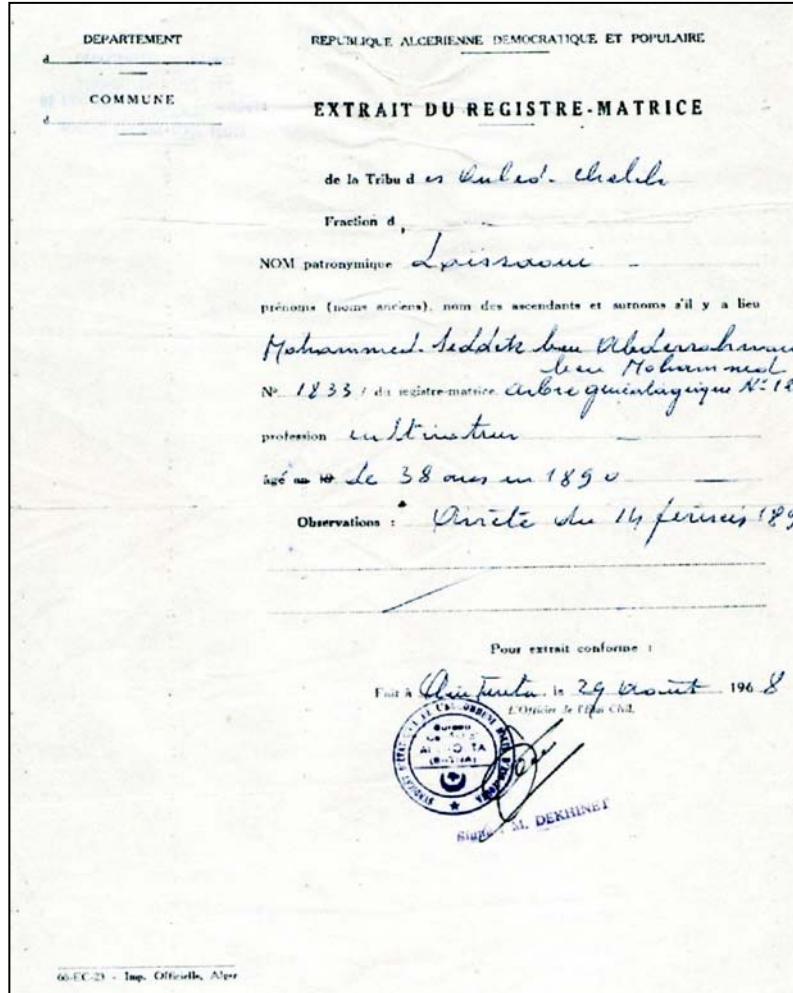 DEPARTEMENT
d
COMMUNE
d
REPUBLIQUE ALGERIENNE DEMOCRATIQUE ET POPULAIRE
EXTRAIT DU REGISTRE-MATRICE
de la Tribu des Ouled-Chelih
Fraction d
NOM patronymique Laissaoui
prénoms (noms anciens), nom des ascendants et surnoms s'il y a lieu
Mohammed-Seddik ben Abderrahman
ben Mohammed
N° 1833 / du registre-matrice. Arbre généalogique N° 12
profession cultivateur
âgé au 18 de 38 ans en 1890
Observations : Arrêté du 14 février 189
Pour extrait conforme :
Fait à Ain Touta le 29 Août 1968
L'Officier de l'Etat Civil,
Bureau
(BATNA)
Signé : M. DEKHINET
66-EC-23 - Imp. Officielle, Alger